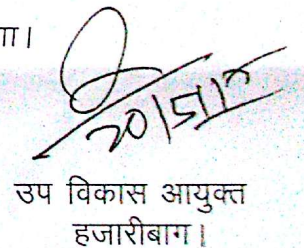 गा।
उप विकास आयुक्त
हजारीबाग।